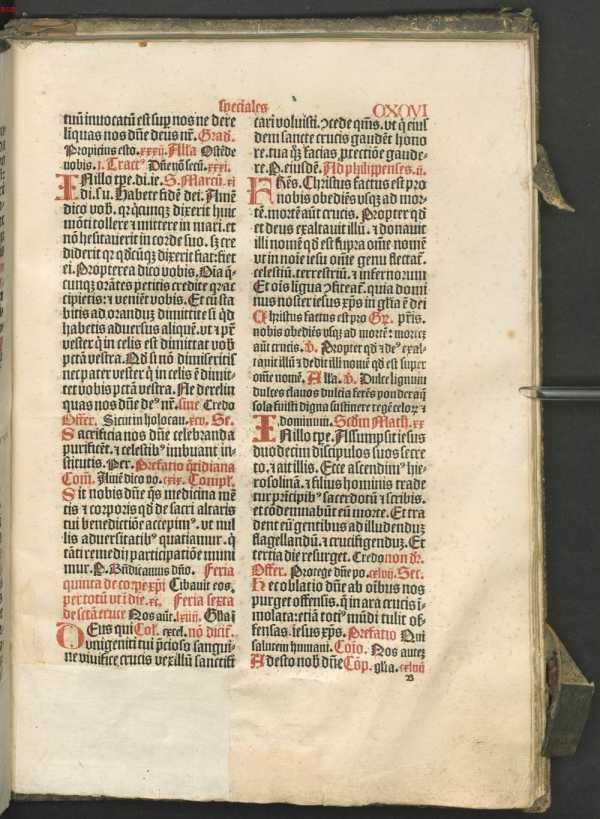 speciales
CXCVI
tuū inuocatū est sup nos ne dere
liquas nos dn̄e deus nr̄. Grad.
Propicius esto. xxxij. Alla Ostēde
nobis. j. Tract⁹ Dn̄e nō scdm̄. xxxi.
IN illo tpe. di. ie. S. Marcū. xi
di. s. u. Habete fidē dei. Amē
dico vob. qr q̄cunqȝ dixerit huic
mōti tollere ⁊ mittere in mari. et
nō hesitauerit in corde suo. sȝ cre
diderit qr qd̄cūqȝ dixerit fiat: fiet
ei. Propterea dico vobis. Oīa q̄-
cunqȝ orātes petitis credite qr ac
cipietis: ⁊ veniēt vobis. Et cū sta
bitis ad oranduȝ dimittite si qd
habetis aduersus aliquē. vt ⁊ pr̄
vester q̄ in celis est dimittat vob
pctā vestra. Qd si nō dimiseritis
nec pater vester q̄ in celis ē dimit-
tet vobis pctā vestra. Ne derelin
quas nos dn̄e de⁹ nr̄. sine Credo
Offer. Sicut in holocau. xcv. Se.
Sacrificia nos dn̄e celebranda
purificēt. ⁊ celestib⁹ imbuant in-
stitutis. Per. Prefatio q̄tidiana
Com̄. Amē dico vo. cxix. Compl̄.
Sit nobis dn̄e qs medicina mē
tis ⁊ corporis qd de sacri altaris
tui benedictiōe accepim⁹. vt nul
lis aduersitatib⁹ quatiamur. q̄
tāti remedij participatiōe muni
mur. P. Bn̄dicamus dn̄o. Feria
quinta de corpe xp̄i Cibauit eos.
per totū vt i die. xc. Feria sexta
de sctā cruce Nos aūt. lxiiij. Glia ī
DEus qui Col̄. excel. nō dicit̄.
vnigeniti tui p̄cioso sangui-
ne viuifice crucis vexillū sanctifi
cari voluisti. ↄcede qm̄s. vt q̄ eius
dem sancte crucis gaudēt hono
re. tua qȝ facias ꝓtectiōe gaude-
re. P. eiusdē. Ad philippenses. ij.
FRēs. Christus factus est pro
nobis obediēs vsqȝ ad mor-
tē. mortē aūt crucis. Propter qd
et deus exaltauit illū. ⁊ donauit
illi nomē qd est supra om̄e nomē
vt in noīe iesu om̄e genu flectat̄.
celestiū. terrestriū. ⁊ infernorum
Et oīs lingua ↄfiteat̄. quia domi
nus noster iesus xp̄s in glīa ē dei
Christus factus est pro Gr̄. pr̄is.
nobis obediēs vsqȝ ad mortē: morteȝ
aūt crucis. ℣. Propter qd ⁊ de⁹ exal-
tauit illū ⁊ dedit illi nomē qd est super
om̄e nomē. Alla. ℣. Dulce lignum
dulces clauos dulcia ferēs pondera q̄
sola fuisti digna sustinere regē celoꝝ ⁊
dominum. Scdm Math. xx
IN illo tpe. Assumpsit iesus
duodecim discipulos suos secre
to. ⁊ ait illis. Ecce ascendim⁹ hie-
rosolimā. ⁊ filius hominis trade
tur prīcipib⁹ sacerdotū ⁊ scribis.
et cōdemnabūt eū morte. Et tra
dent eū gentibus ad illudenduȝ
flagellandū. ⁊ crucifigenduȝ. Et
tertia die resurget. Credo non dr̄.
Offer. Protege dn̄e po. cxlvij. Sec.
Hec oblatio dn̄e ab oībus nos
purget offensis. q̄ in ara crucis ī-
molata: etiā toti⁹ mūdi tulit of-
fensas. iesus xp̄s. Prefatio Qui
salutem humani. Coīo. Nos auteȝ
Adesto nob dn̄e Cōp. glia. cxlvij
B